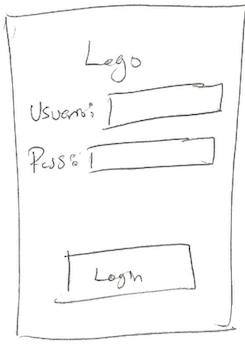 Lego
Usuario:
Pass:
Login